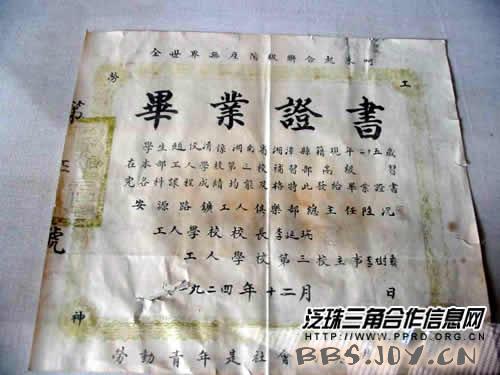 全世界無産階級聯合起來呵
勞 工
畢業證書
第
學生趙汶清係湖南省湘潭縣籍現年二十五歲
在本部工人學校第三校補習部高級 習
完各科課程成績均能及格特此發給畢業證書
安源路鑛工人俱樂部總主任陸沉
工人學校校長李延瑞
工人學校第三校主事李樹
號
一九二四年十二月 日
神
勞動青年是社會
泛珠三角合作信息网
WWW.PPRD.ORG.CN
BBS.JDY.CN